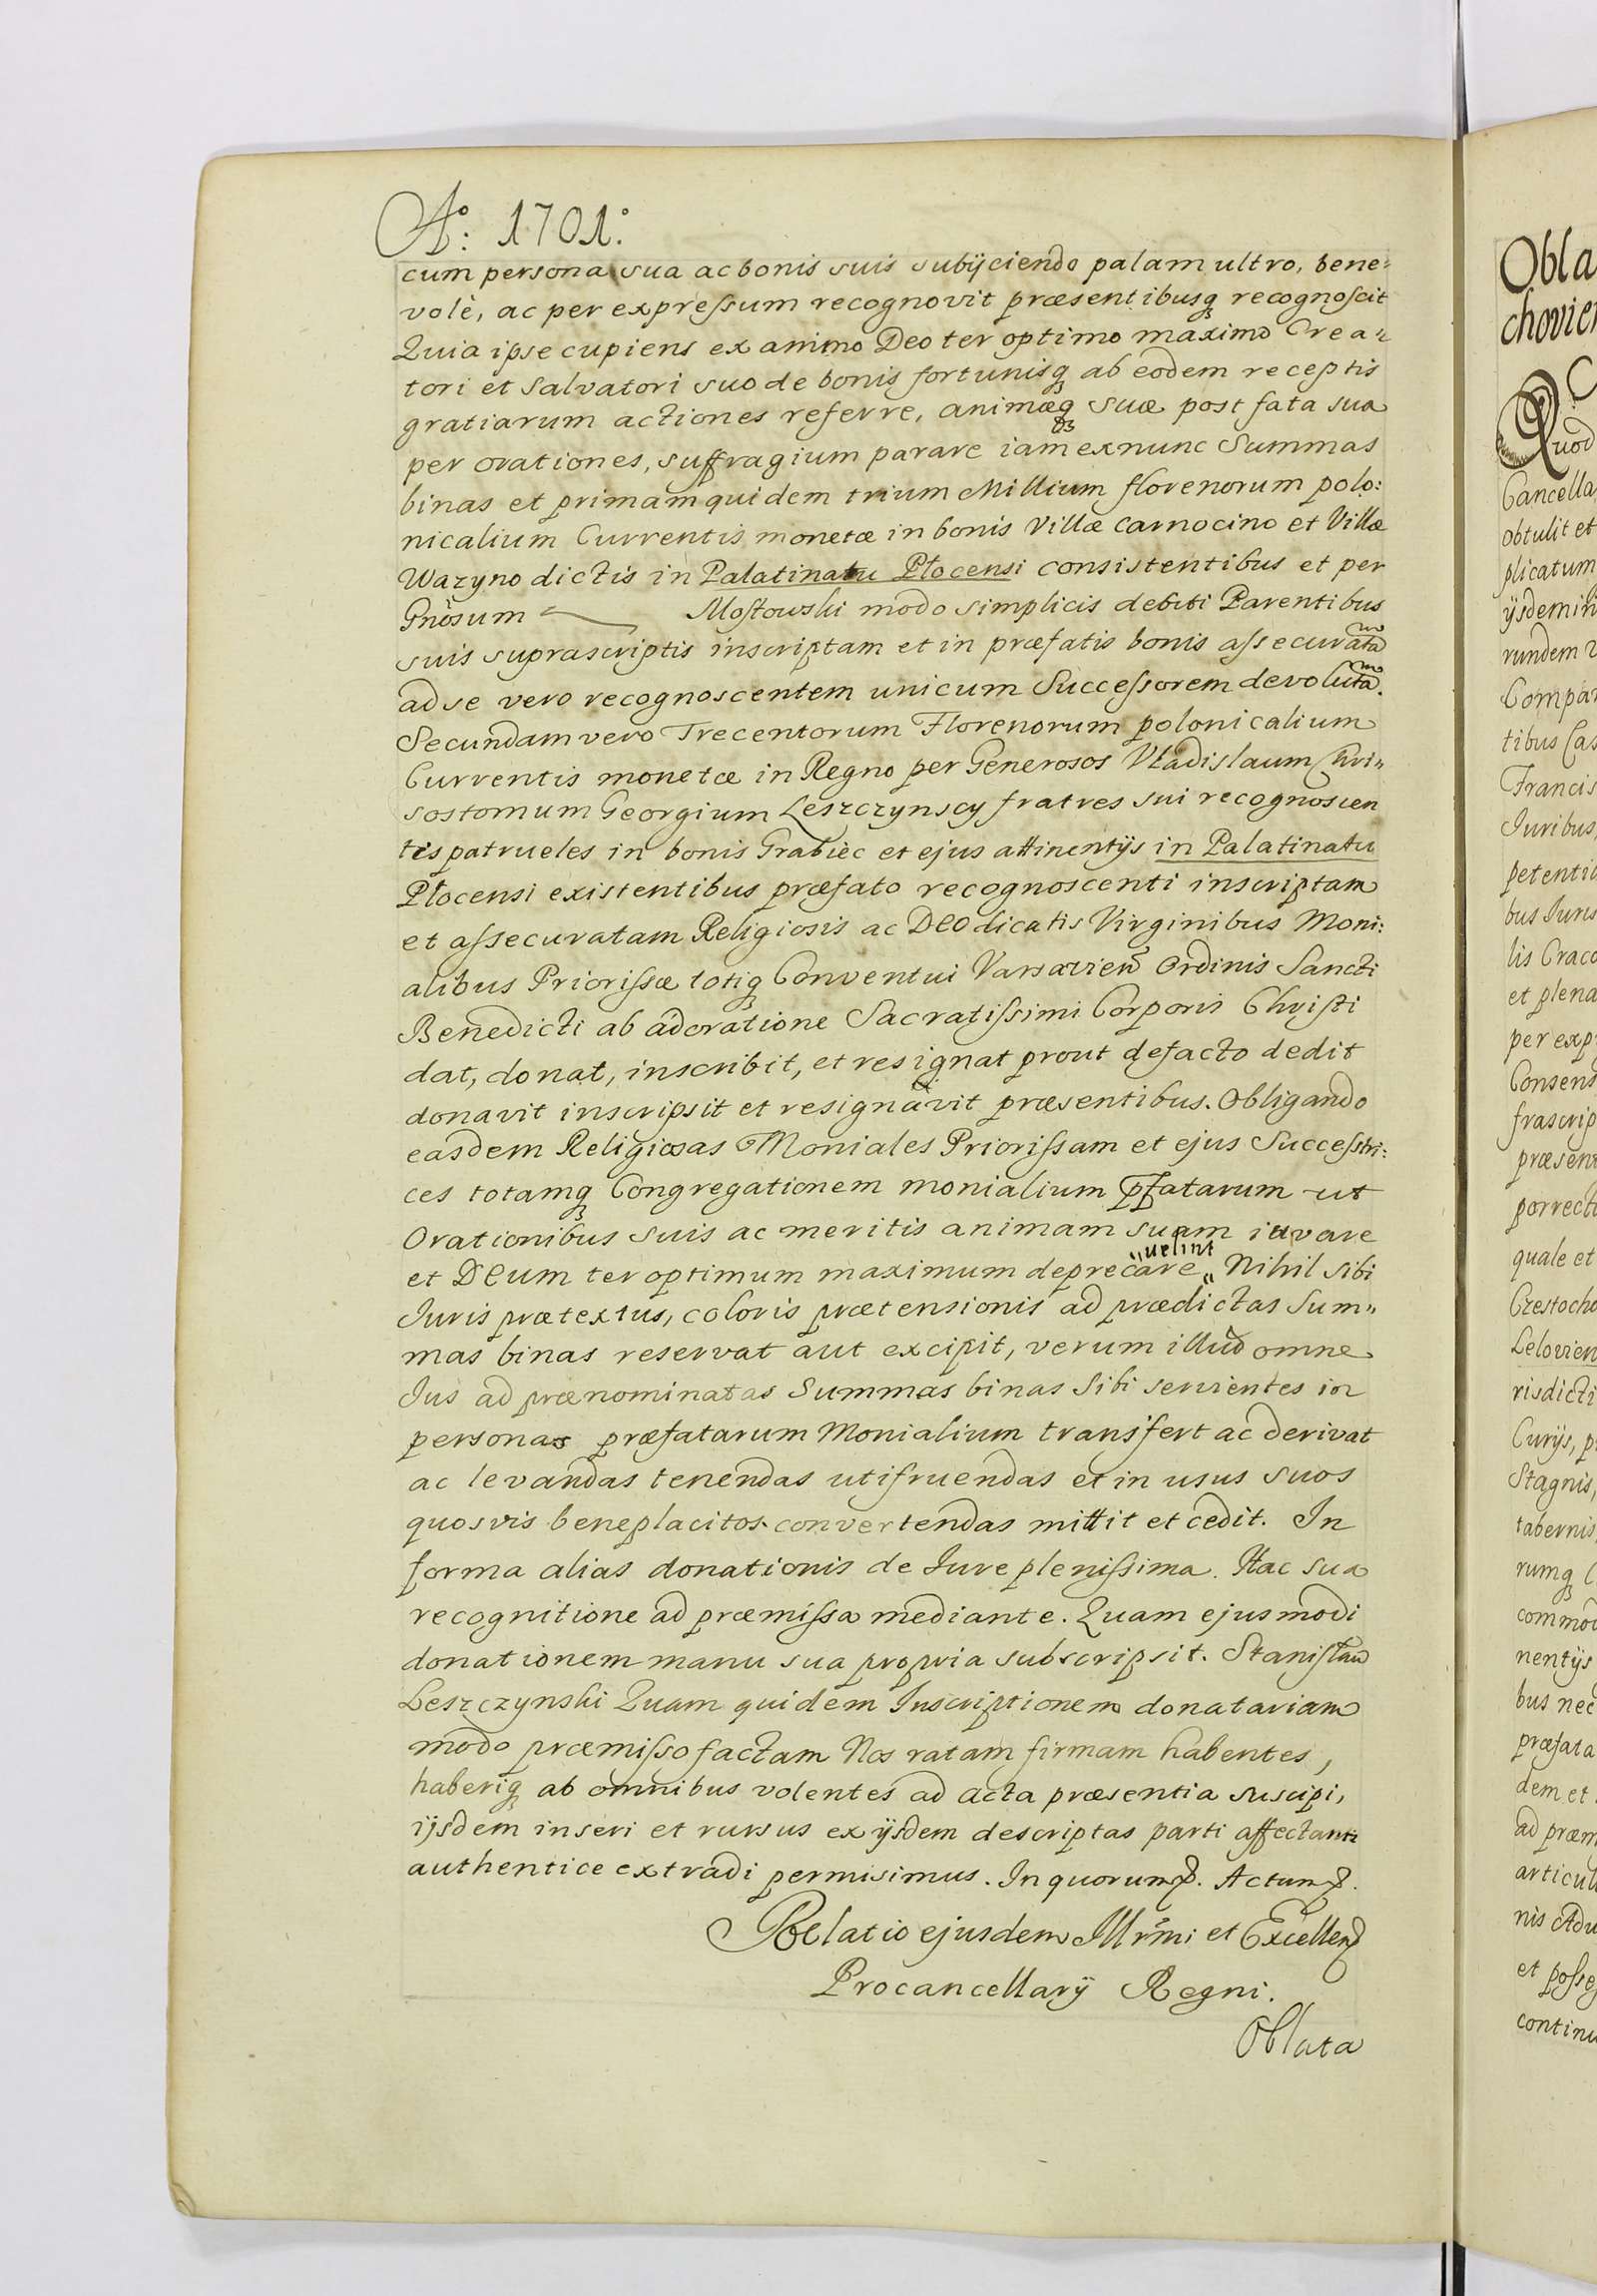 Aº: 1701º
cum persona sua ac bonis suis subijciendo palam ultro, bene=
volè, ac per expreſsum recognovit præsentibusq recognoſcit
Quia ipse cupiens ex animo Deo ter optimo maximo Crea=
tori et Salvatori suo de bonis fortunisq ab eodem receptis
gratiarum actiones referre, animæq suæ post fata sua
per orationes, suffragium parare iam ex nunc Summas
binas et primam quidem trium Millium florenorum polo:
nicalium Currentis monetæ in bonis Villæ Carnocino et Villæ
Wazyno dictis in Palatinatu Płocensi consistentibus et per
Gnosum Moſtowski modo simplicis debiti Parentibus
suis suprascriptis inscriptam et in præfatis bonis aſsecurata
ad se vero recognoscentem unicum Succeſsorem devoluta.
Secundam vero Trecentorum Florenorum polonicalium
Currentis monetæ in Regno per Generosos Vładislaum Chri„
sostomum Georgium Leszczynscy fratres sui recognoscen
tis patrueles in bonis Grabiec et ejus attinentijs in Palatinatu
Płocensi existentibus præfato recognoscenti inscriptam
et aſsecuratam Religiosis ac DEO dicatis Virginibus Moni:
alibus Prioriſsæ totiq Conventui Varsavien Ordinis Sancti
Benedicti ab adoratione Sacratiſsimi Corporis Chriſti
dat, donat, inscribit, et resignat prout defacto dedit
donavit inscripsit et resignavit præsentibus. Obligando
easdem Religiosas Moniales Prioriſsam et ejus Succeſstri:
ces totamq Congregationem monialium pfatarum ut
Orationibus suis ac meritis animam suam iuvare
et DEum ter optimum maximum deprecare „uelint„ Nihil sibi
Iuris prætextus, coloris prætensionis ad prædictas Sum„
mas binas reservat aut excipit, verum illud omne
Ius ad prænominatas Summas binas Sibi servientes in
personas præfatarum Monialium transfert ac derivat
ac levandas tenendas utifruendas et in usus suos
quosvis beneplacitos convertendas mittit et cedit. In
forma alias donationis de Iure pleniſsima. Hac sua
recognitione ad præmiſsa mediante. Quam ejusmodi
donationem manu sua propria subscripsit. Stanisław
Leszczynski Quam quidem Inscriptionem donatariam
modo præmiſso factam Nos ratam firmam habentes,
haberiq ab omnibus volentes ad acta præsentia suscipi,
ijsdem inseri et rursus ex ijsdem descriptas parti affectanti
authentice extradi permisimus. In quorum p. Actum p.
Relatio ejusdem Illrmi et Excellen
Procancellarij Regni.
Oblata
Obla
chovien
Quod
Cancella
obtulit et
plicatum
ijsdem in
rundem
Compar
tibus Cas
Francis
Iuribus,
petentia
bus Iuris
lis Craco
et plena
per exp
Consens
frascrip
præsent
porrect
quale et
Czestocho
Lelovien
risdicti
Curijs, p
Stagnis,
tabernis
rumq
commod
nentijs
bus nec
præfata
dem et
ad præm
articul
nis Adv
et poſse
continu